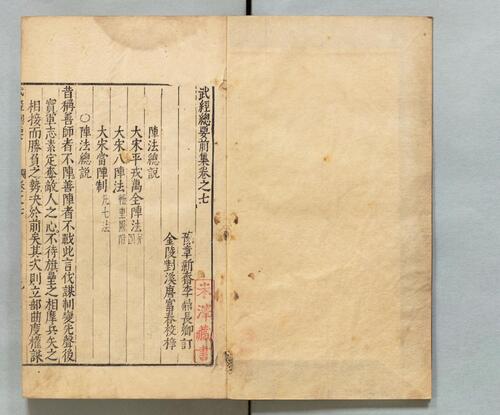 武經總要前集卷之七
豫章新齋李鼎長卿訂
金陵對溪唐富春校梓
陣法總說
大宋平戎萬全陣法
大宋八陣法
大宋常陣制
○陣法總說
昔稱善師者不陣善陣者不戰此言伐謀制變先聲後
實軍志素定奪敵人之心不待旗壘之相摩兵矢之
相接而勝負之勢決於前矣其次則立部曲度權謀
宋澤藏書